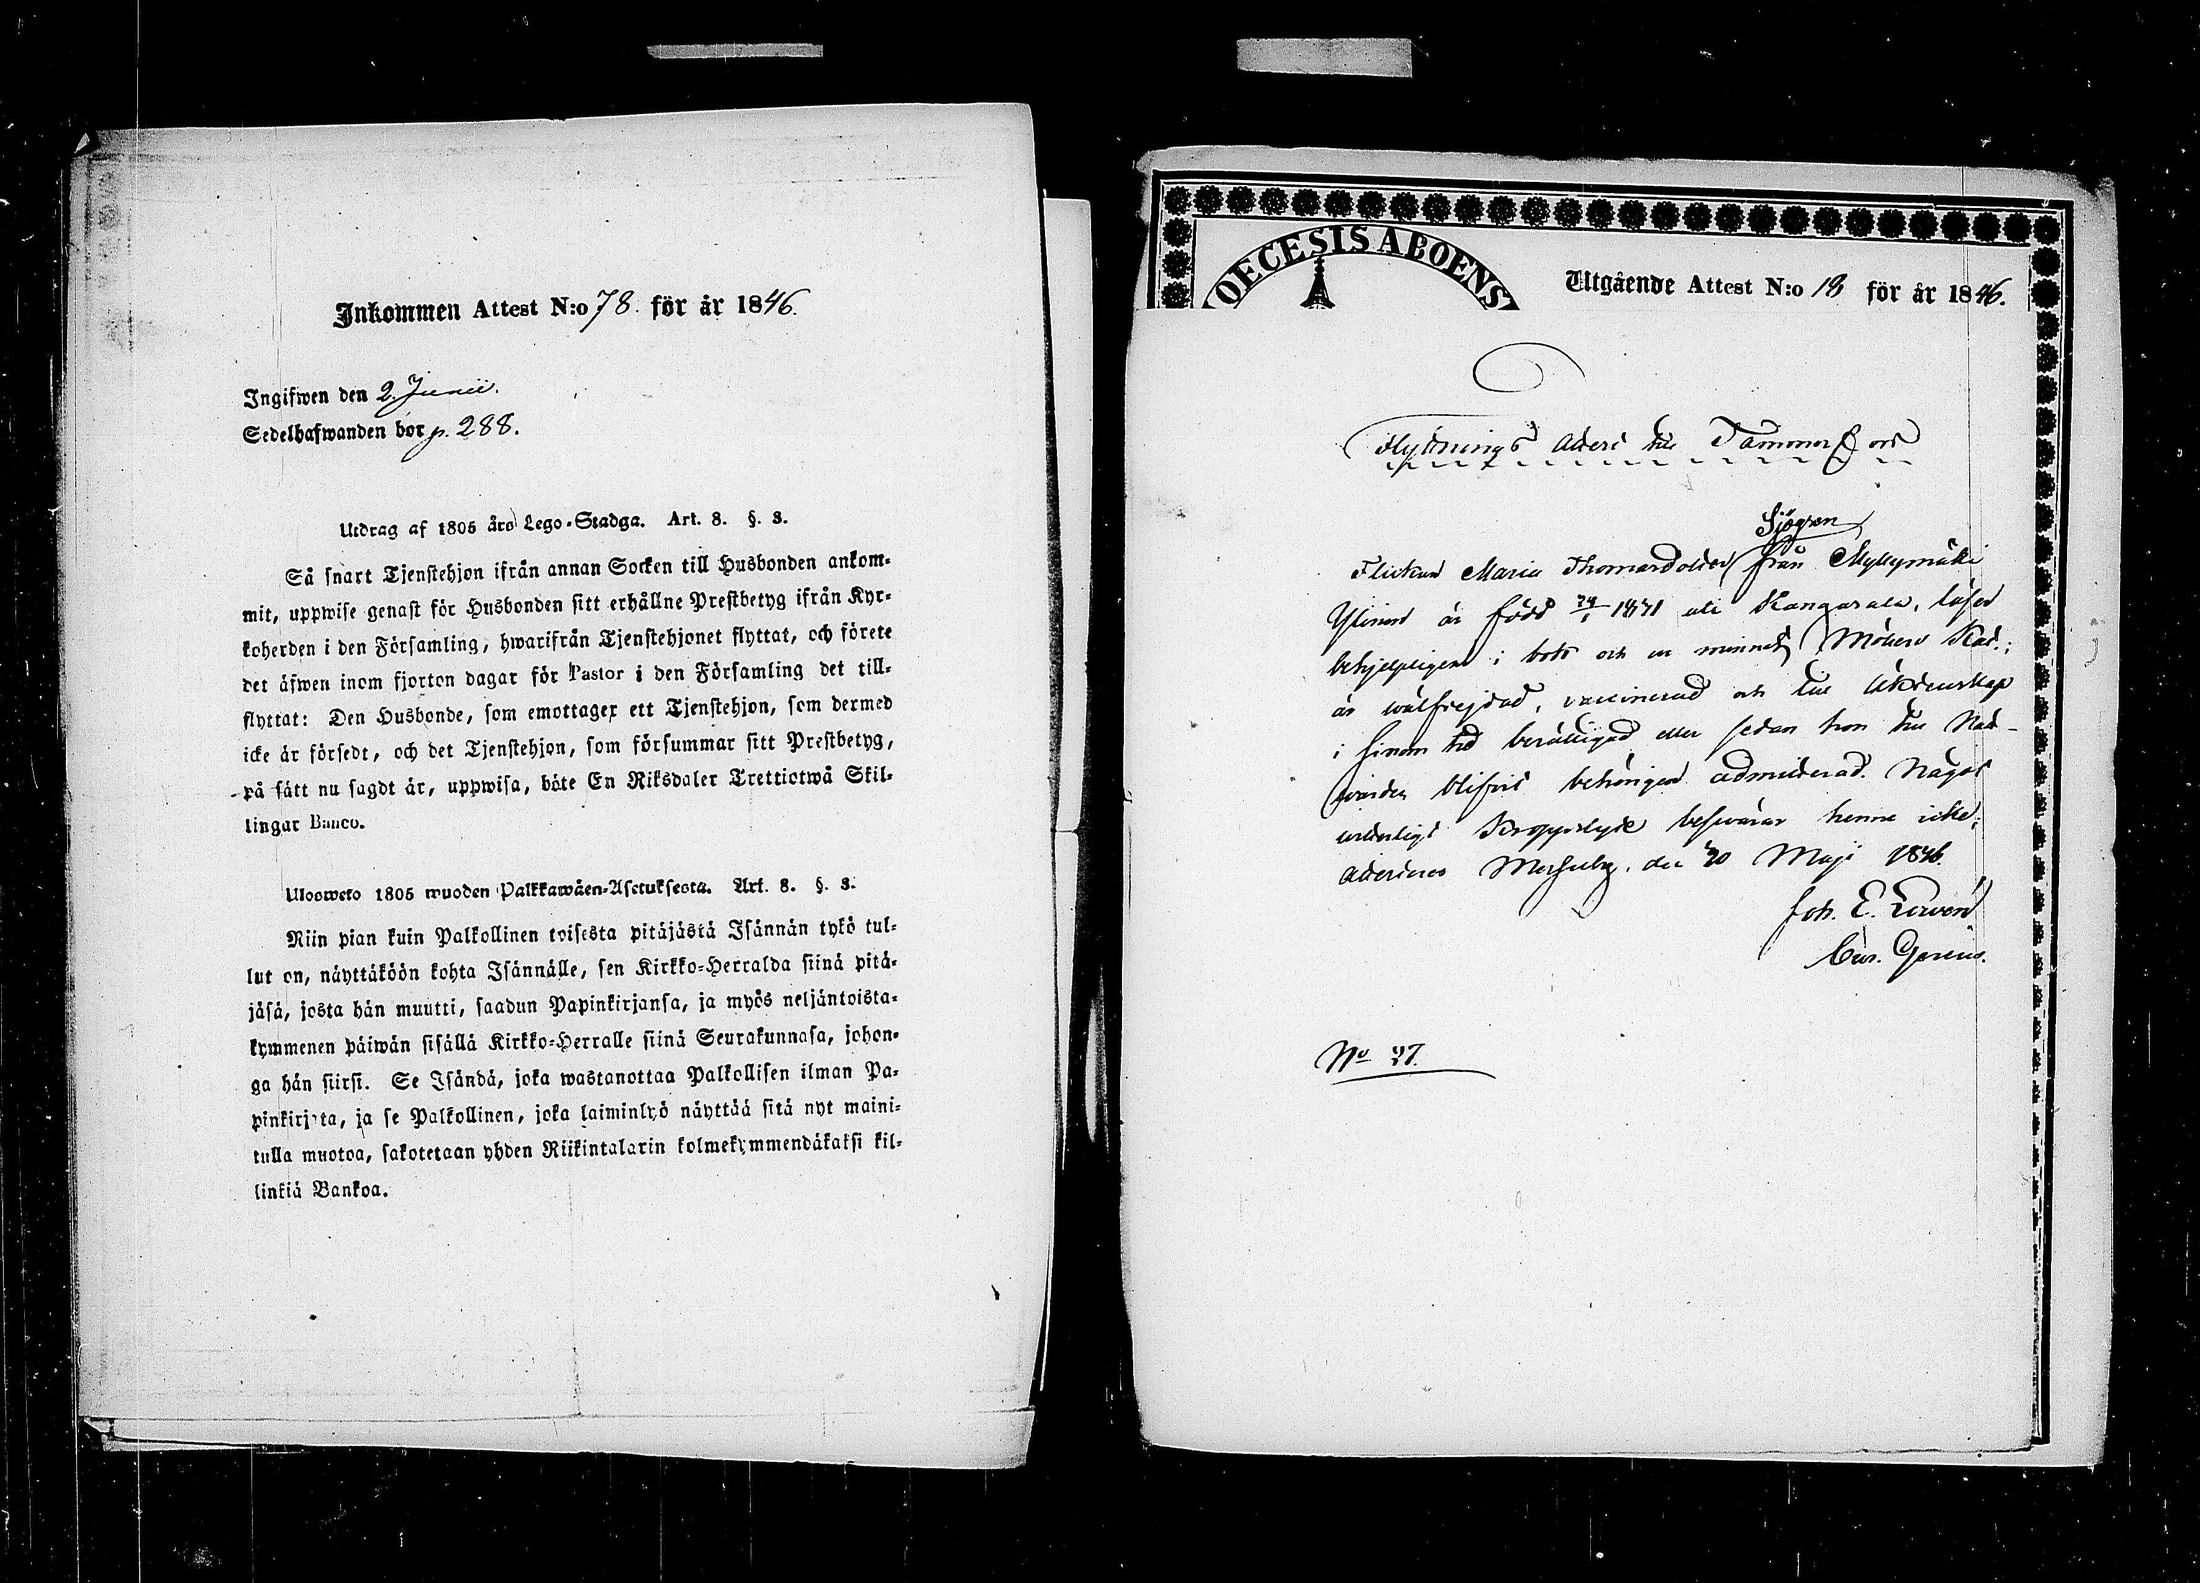 Inkommen Attest N:o 78. för år 1846.
Ingifwen den 2. Junii.
Sedelhafwanden bor p. 288.
Utdrag af 1805 års Lego-Stadga. Art. 8. §. 3.
Så snart Tjenstehjon ifrån annan Socken till Husbonden ankom-
mit, uppwise genast för Husbonden sitt erhållne Prestbetyg ifrån Kyr-
koherden i den Församling, hwarifrån Tjenstehjonet flyttat, och förete
det äfwen inom fjorton dagar för Pastor i den Församling det till-
flyttat: Den Husbonde, som emottager ett Tjenstehjon, som dermed
icke är försedt, och det Tjenstehjon, som försummar sitt Prestbetyg,
på sätt nu sagdt är, uppwisa, böte En Riksdaler Trettiotwå Skil-
lingar Banco.
Ulosweto 1805 wuoden Palkkawäen-Asetuksesta. Art. 8. §. 3.
Niin pian kuin Palkollinen toisesta pitäjästä Isännän tykö tul-
lut on, näyttäköön kohta Isännälle, sen Kirkko-Herralda siinä pitä-
jäsä, josta hän muutti, saadun Papinkirjansa, ja myös neljäntoista-
kymmenen päiwän sisällä Kirkko-Herralle siinä Seurakunnasa, johon-
ga hän siirsi. Se Isändä, joka wastanottaa Palkollisen ilman Pa-
pinkirjata, ja se Palkollinen, joka laiminlyö näyttää sitä nyt maini-
tulla muotoa, sakotetaan yhden Riikintalarin kolmekymmendäkaksi kil-
linkiä Bankoa.
OECESIS ABOENS
Utgående Attest N:o 13 för år 1846.
Flyttnings Attest till Tammerfors
Sjögren
Flickan Maria Thomasdotter från Myllymäki
är född 1831 uti Kangasala, läser
behjelpligen i bok och ur minnet
är wälfrejdad, vaccinerad och till Äktenskap
i sinom tid berättigad eller sedan hon till Natt-
warden blifwit behörigen admitterad. Något
urskiljeligt Kroppslyte beswärar henne icke;
attesteras Messuby, den 20 Maji 1846.
Joh. E.
No 37.